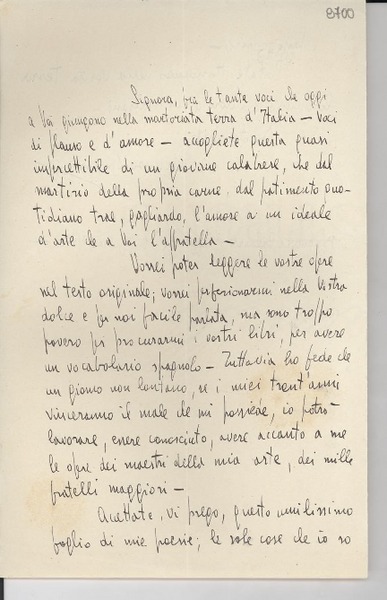 8700
Signora, fra le tante voci che oggi
a Voi giungono nella martoriata terra d'Italia — voci
di plauso e d'amore — accogliete questa quasi
impercettibile di un giovane calabrese, che dal
martirio della propria carne, dal patimento quo-
tidiano trae, gagliardo, l'amore a un ideale
d'arte che a Voi l'affratella —
Vorrei poter leggere le vostre opere
nel testo originale; vorrei perfezionarmi nella Vostra
dolce e per noi facile parlata, ma sono troppo
povero per procurarmi i vostri libri, per avere
un vocabolario spagnolo — Tuttavia ho fede che
un giorno non lontano, se i miei trent'anni
vinceranno il male che mi possiede, io potrò
lavorare, essere conosciuto, avere accanto a me
le opere dei maestri della mia arte, dei mille
fratelli maggiori —
Accettate, vi prego, questo umilissimo
foglio di mie poesie; le sole cose che io so